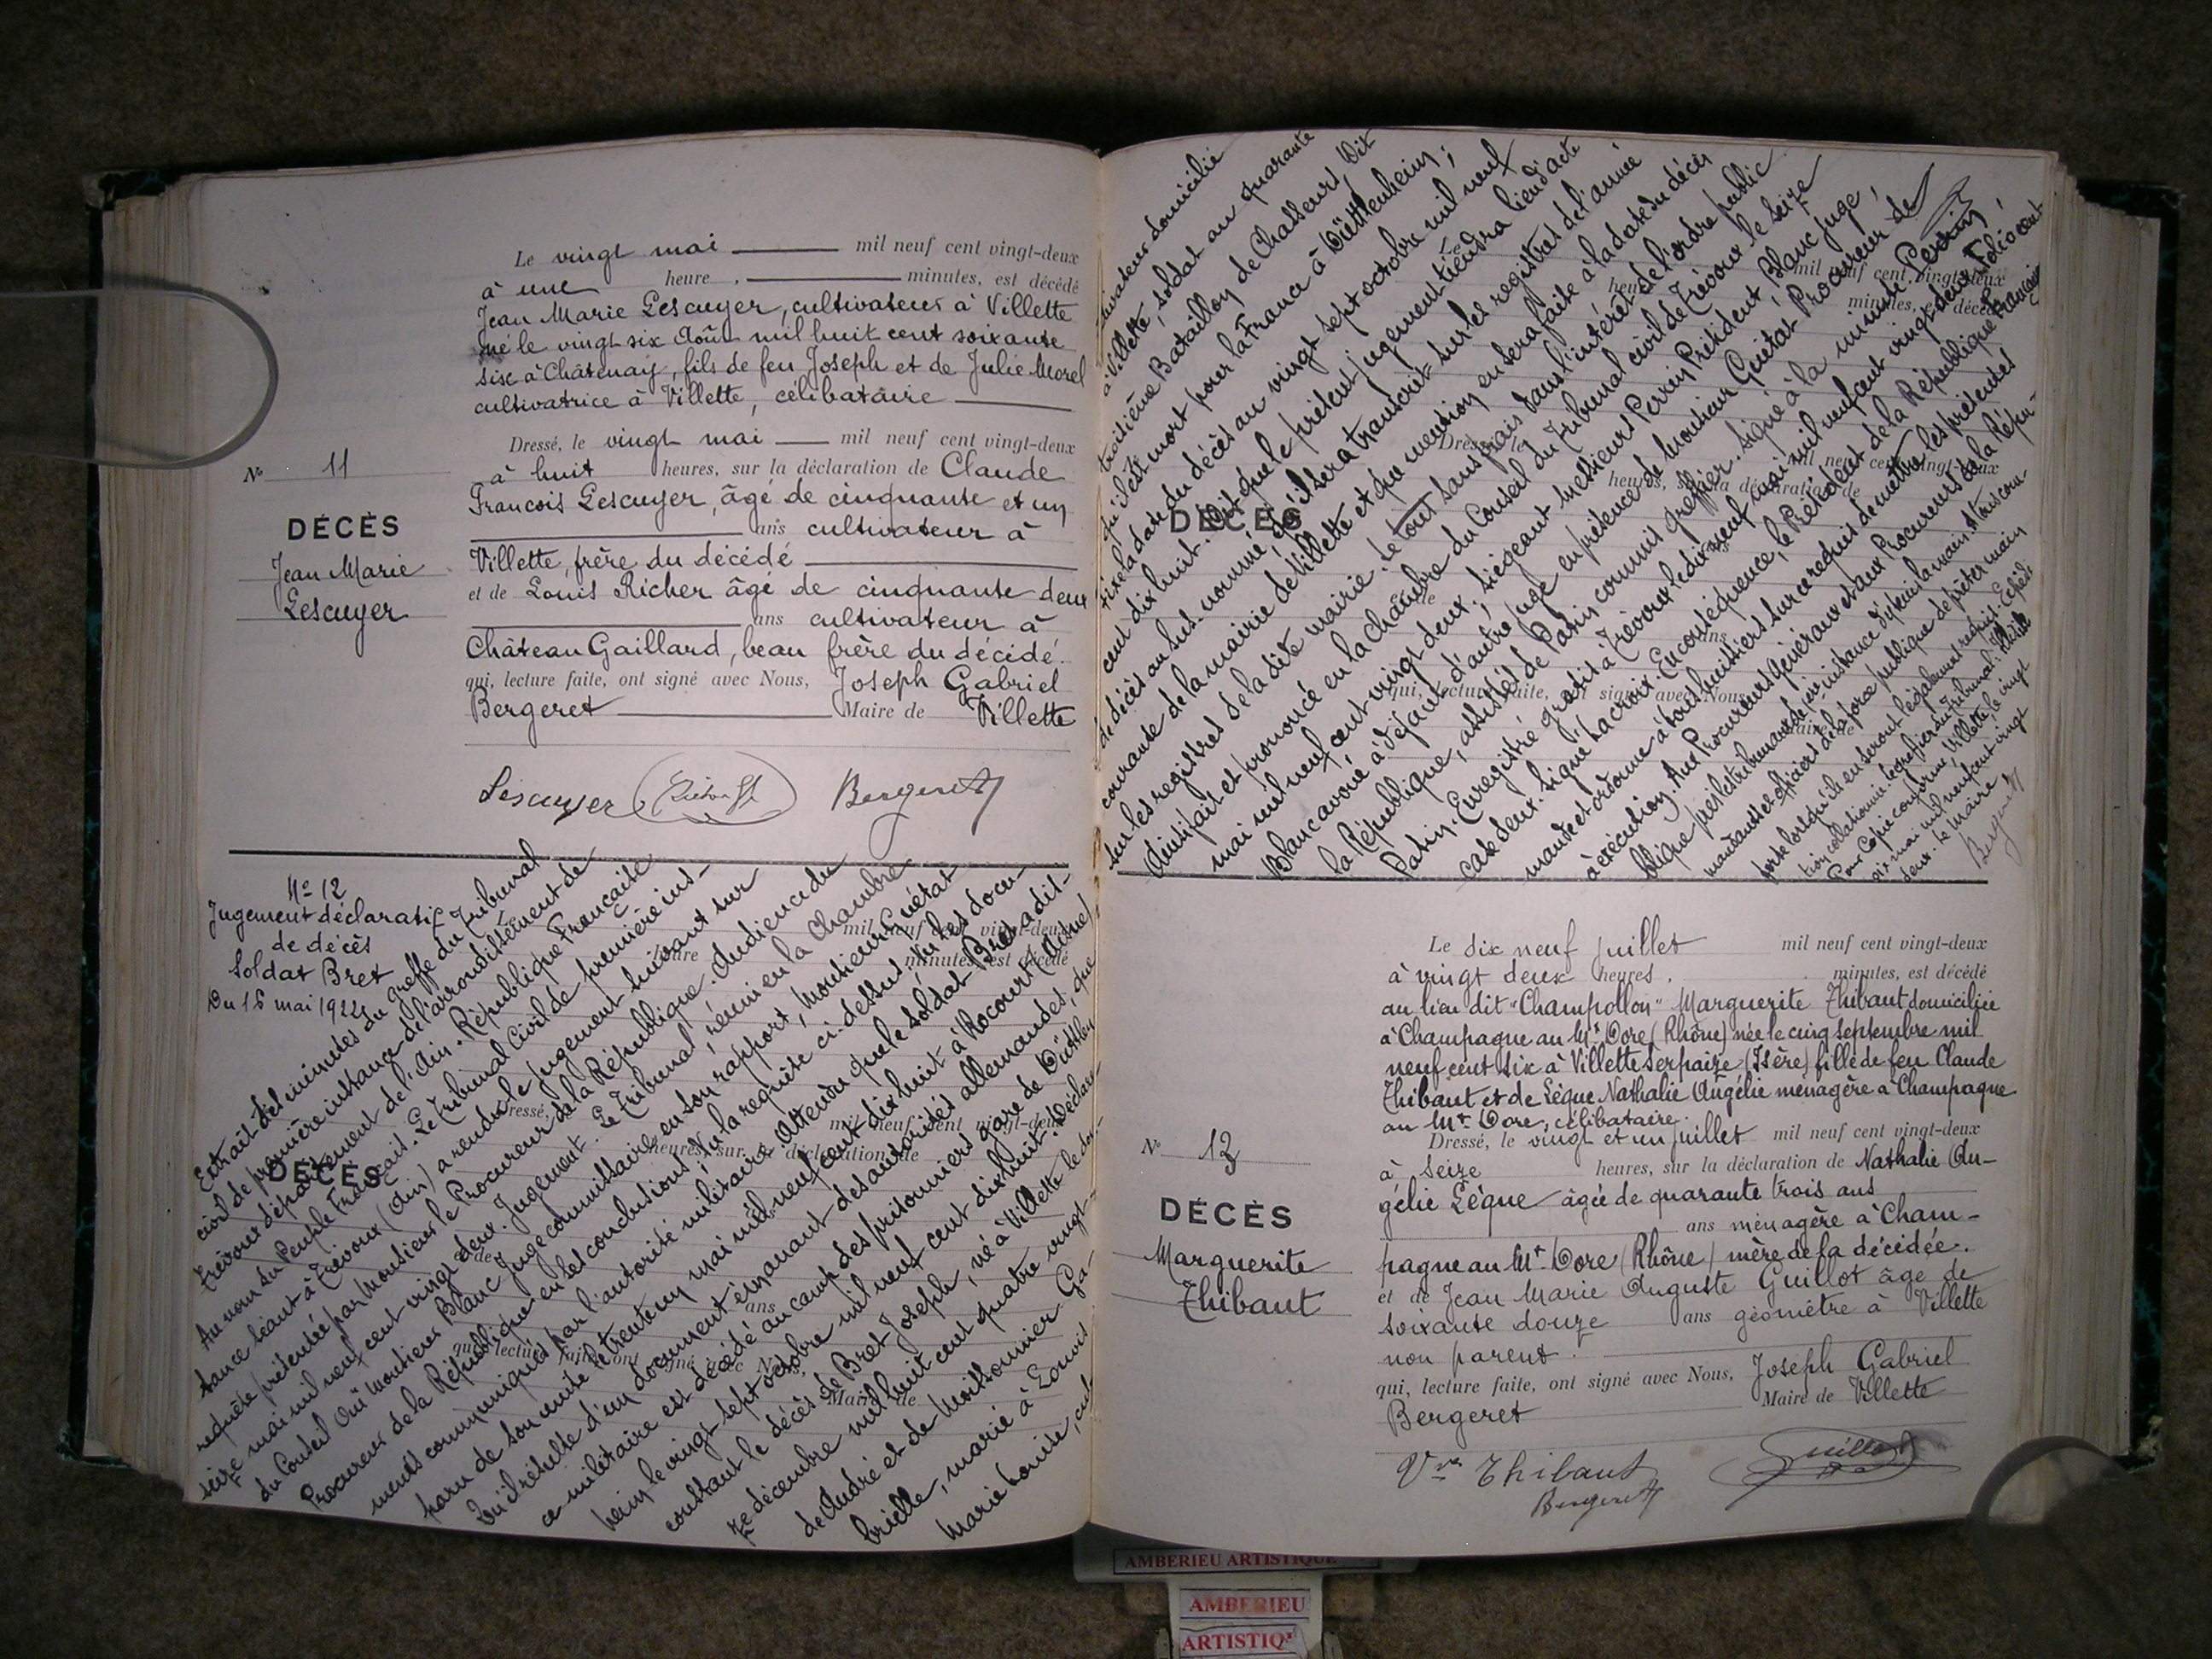 Le vingt mai mil neuf cent vingt-deux
à une heure, minutes, est décédé
Jean Marie Lescuyer, cultivateur à Villette
né le vingt six Août mil huit cent soixante
six à Châtenay, fils de feu Joseph et de Julie Morel
cultivatrice à Villette, célibataire
Dressé, le vingt mai mil neuf cent vingt-deux
N° 11
à huit heures, sur la déclaration de Claude
François Lescuyer, âgé de cinquante et un
DÉCÈS
ans cultivateur à
Jean Marie
Lescuyer
Villette, frère du décédé
et de Louis Richer âgé de cinquante deux
ans cultivateur à
Château Gaillard, beau frère du décédé.
qui, lecture faite, ont signé avec Nous, Joseph Gabriel
Bergeret Maire de Villette
Lescuyer Bergeret
N° 12
Jugement déclaratif
de décès
Soldat Bret
Du 16 mai 1922
DÉCÈS
Extrait des minutes du Greffe du Tribunal
civil de première instance de l'arrondissement de
Trévoux département de l'Ain. République Française
Au nom du Peuple Français. Le Tribunal Civil de première ins-
tance séant à Trévoux (Ain) a rendu le jugement suivant sur
requête présentée par Monsieur le Procureur de la République. Audience du
seize mai mil neuf cent vingt deux. Jugement. Le Tribunal, réuni en la Chambre
du Conseil Ouï Monsieur Blanc Juge commissaire en son rapport, Monsieur Guétat
Procureur de la République en ses conclusions; Vu la requête ci-dessus; Vu les docu-
ments communiqués par l'autorité militaire. Attendu que le soldat Bret a dis-
paru de son unité le trente un mai mil neuf cent dix huit à Rocourt (Aisne)
Qu'il résulte d'un document émanant des autorités allemandes, que
ce militaire est décédé au camp des prisonniers gare de Düttlen
heim le vingt sept octobre mil neuf cent dix huit. Déclare
constant le décès de Bret Joseph, né à Villette le dou-
ze décembre mil huit cent quatre vingt-
de André et de Moissonnier Ga-
brielle, marié à Convis
Marie Louise, cul
tivateur domicilié
à Villette, soldat au quarante
troisième Bataillon de Chasseurs, Dit
qu'il est mort pour la France à Düttlenheim;
fixe la date du décès au vingt sept octobre mil neuf
cent dix huit. Dit que le présent jugement tiendra lieu d'acte
de décès au sus-nommé, qu'il sera transcrit sur les registres de l'année
courante de la mairie de Villette et que mention en sera faite à la date du décès
sur les registres de la dite mairie. Le tout sans frais dans l'intérêt de l'ordre public
Ainsi fait et prononcé en la Chambre du Conseil du Tribunal civil de Trévoux le seize
mai mil neuf cent vingt deux, siégeant Messieurs Perrin Président, Blanc juge,
Blanc avoué à défaut d'autre juge en présence de Monsieur Guétat Procureur de
la République, assistés de Patin commis greffier. Signé à la minute Perrin,
Patin. Enregistré gratis à Trévoux le dix neuf mai mil neuf cent vingt deux Folio cent
case deux. Signé Lacroix. En conséquence, le Président de la République Française
mande et ordonne à tous huissiers sur ce requis de mettre les présentes
à exécution. Aux Procureurs Généraux et aux Procureurs de la Répu-
blique près les tribunaux de 1ère instance d'y tenir la main. A tous com-
mandants et officiers de la force publique de prêter main
forte lorsqu'ils en seront légalement requis. Expédi-
tion collationnée. Le greffier du Tribunal:
Pour Copie conforme, Villette, le vingt
six mai mil neuf cent vingt
deux. Le Maire
Bergeret
DÉCÈS
Le dix neuf juillet mil neuf cent vingt-deux
à vingt deux heures, minutes, est décédé
au lieu dit "Champollon" Marguerite Thibaut domiciliée
à Champagne au Mt Dore (Rhône) née le cinq septembre mil
neuf cent six à Villette Serpaize (Isère) fille de feu Claude
Thibaut et de Lèque Nathalie Angélie ménagère à Champagne
au Mt Dore, célibataire.
Dressé, le vingt et un juillet mil neuf cent vingt-deux
N° 13
à seize heures, sur la déclaration de Nathalie An-
gélie Lèque âgée de quarante trois ans
DÉCÈS
ans ménagère à Cham-
Marguerite
Thibaut
pagne au Mt Dore (Rhône) mère de la décédée.
et de Jean Marie Auguste Guillot âgé de
soixante douze ans géomètre à Villette
non parent.
qui, lecture faite, ont signé avec Nous, Joseph Gabriel
Bergeret Maire de Villette
Vve Thibaut Guillot
Bergeret
AMBERIEU ARTISTIQUE
AMBERIEU
ARTISTIQ